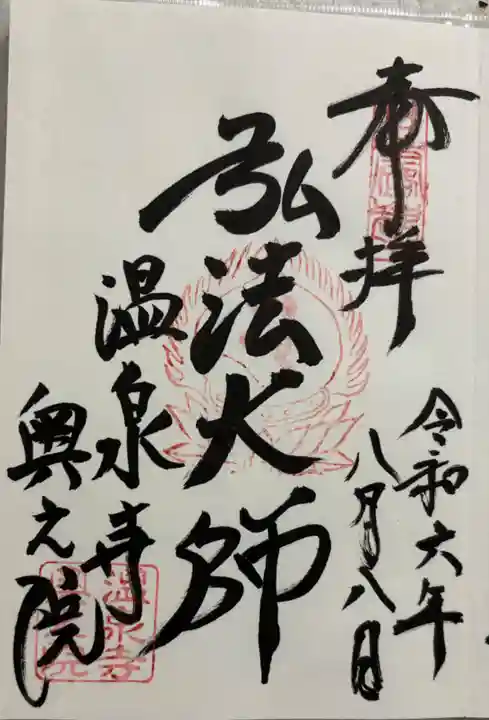 奉拝
令和六年
八月八日
弘法大師
温泉寺
奥之院
温泉寺